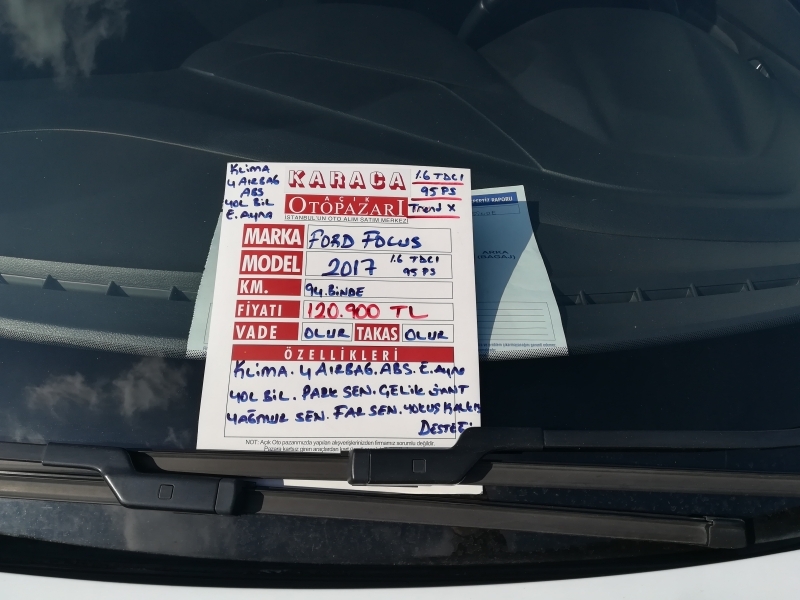 KLİMA
4 AİRBAG
ABS
YOL BİL
E. AYNA
KARACA
AÇIK
OTOPAZARI
İSTANBUL'UN OTO ALIM SATIM MERKEZİ
1.6 TDCI
95 PS
Trend X
MARKA FORD FOCUS
MODEL 2017 1.6 TDCI
95 PS
KM. 94.BİNDE
FİYATI 120.900 TL
VADE OLUR TAKAS OLUR
ÖZELLİKLERİ
KLİMA. 4 AİRBAG. ABS. E. AYNA
YOL BİL. PARK SEN. ÇELİK JANT
YAĞMUR SEN. FAR SEN. YOKUŞ KALKIŞ
DESTEĞİ
NOT: Açık Oto pazarımızda yapılan alışverişlerinizden firmamız sorumlu değildir.
Pazara karbuz giren araçlardan
RAPORU
ARKA
(BAGAJ)